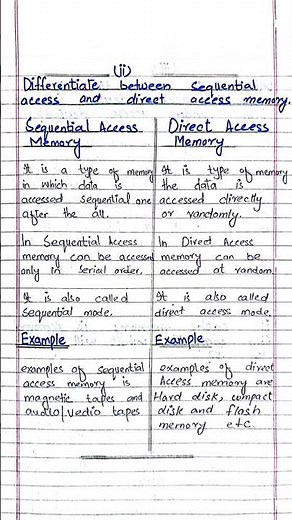 (ii)
Differentiate between sequential
access and direct access memory.
Sequential Access
Memory
It is a type of memory
in which data is
accessed sequential one
after the all.
In Sequential Access
memory can be accessed
only in Serial order.
It is also called
Sequential mode.
Example
examples of sequential
access memory is
magnetic tapes and
audio/vedio tapes
Direct Access
Memory
It is type of memory
the data is
accessed directly
or randomly.
In Direct Access
memory can be
accessed at random
It is also called
direct access mode.
Example
examples of direct
Access memory are
Hard disk, compact
disk and flash
memory etc.